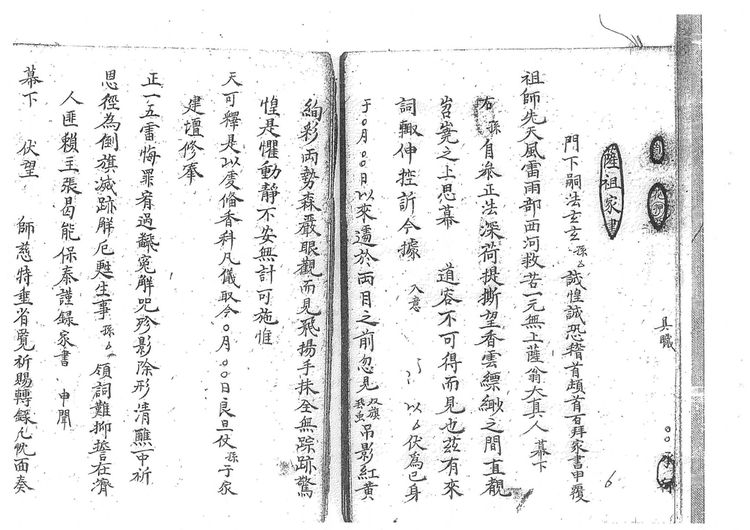 具職
薩祖家書
門下嗣法玄玄孫厶誠惶誠恐稽首頓首百拜家書申覆
祖師先天風雷雨部西河救苦一元無上薩翁大真人 幕下
右孫自叅正法深荷提撕望香雲縹緲之間直覩
岧嶤之上思慕 道容不可得而見也茲有來
詞輙伸控訴今據 入意 以厶伏為己身
于〇月〇〇日以來邇於兩月之前忽見 吊影紅黄
絢彩兩勢森嚴眼觀而見飛揚手抹全無踪跡驚
惶是懼動静不安無計可施惟
天可釋是以虔俻香科凡儀取今〇月〇〇日良旦仗孫于家
建壇修奉
正一五雷悔罪宥過 寃解咒殄影除形清醮一申祈
恩徑為倒旗滅跡解厄甦生事孫厶領詞難抑誓在濟
人匪賴主張曷能保泰謹録家書 申聞
幕下 伏望 師慈特垂省覧祈賜轉録凡忱面奏
6